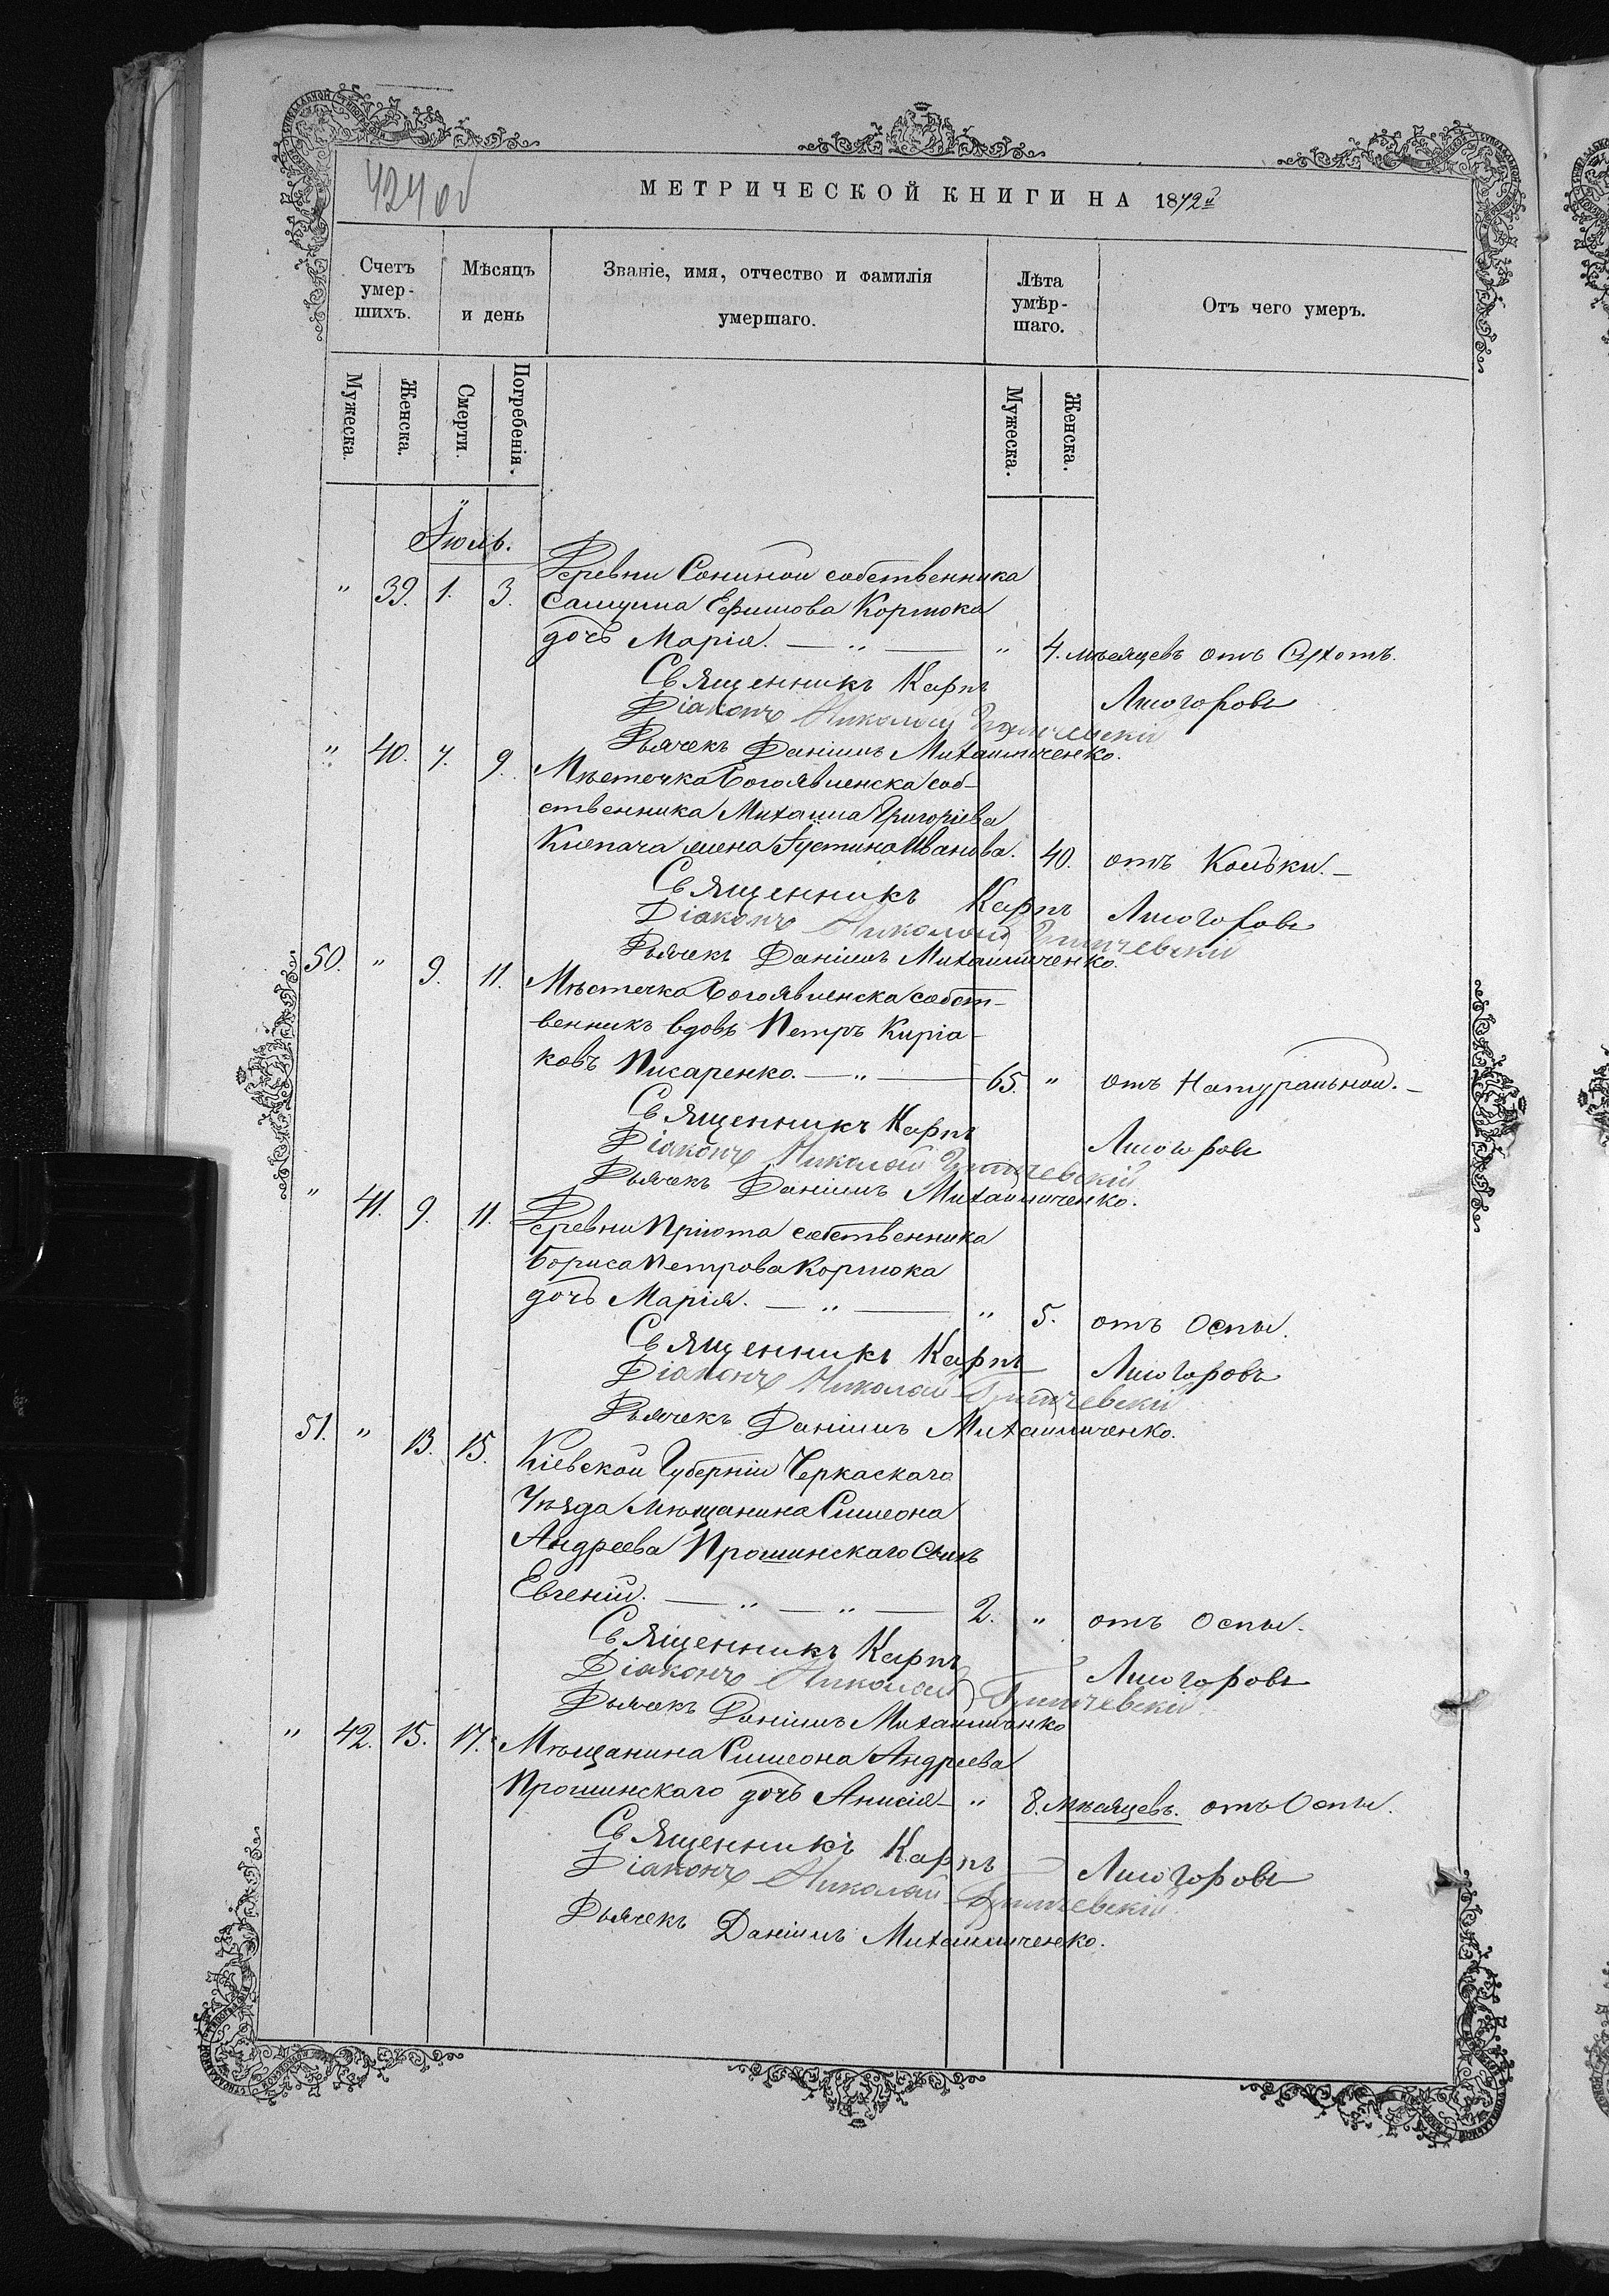 424 об
МЕТРИЧЕСКОЙ КНИГИ НА 1872й
Счетъ умер-шихъ.
Мѣсяцъ и день
Званіе, имя, отчество и фамилія умершаго.
Лѣта умѣр-шаго.
Отъ чего умеръ.
Мужеска.
Женска.
Смерти.
Погребенія.
Мужеска.
Женска.
Іюль.
" 39. 1. 3. Деревни Сониной собственника
Самуила Ефимова Кормока
дочь Марія. — " — " 4. мѣсяцевъ отъ
Священникъ Карпъ Лисогоровъ
Діаконъ Николай
Дьячекъ Даніилъ Михайличенко.
" 40. 7. 9. Мѣстечка Богоявленска соб-
ственника Михаила Григоріева
Клепача жена Іустина Иванова. 40. отъ Кольки. —
Священникъ Карпъ Лисогоровъ
Діаконъ Николай
Дьячекъ Даніилъ Михайличенко.
50. " 9. 11. Мѣстечка Богоявленска собст-
венникъ вдовъ Петръ Киріа-
ковъ Писаренко. — " — 65. " отъ Натуральной. —
Священникъ Карпъ Лисогоровъ
Діаконъ Николай
Дьячекъ Даніилъ Михайличенко.
" 41. 9. 11. Деревни Пріюта собственника
Бориса Петрова Кормока
дочь Марія. — " — " 5. отъ Оспы.
Священникъ Карпъ Лисогоровъ
Діаконъ Николай
Дьячекъ Даніилъ Михайличенко.
51. " 13. 15. Кіевской Губерніи Черкаскаго
Уѣзда Мѣщанина Симеона
Андреева Прошинскаго сынъ
Евгеній. — " — " — 2. " отъ Оспы.
Священникъ Карпъ Лисогоровъ
Діаконъ Николай
Дьячекъ Даніилъ Михайличенко
" 42. 15. 17. Мѣщанина Симеона Андреева
Прошинскаго дочь Анисія — " 8. мѣсяцевъ. отъ Оспы.
Священникъ Карпъ Лисогоровъ
Діаконъ Николай
Дьячекъ Даніилъ Михайличенко.